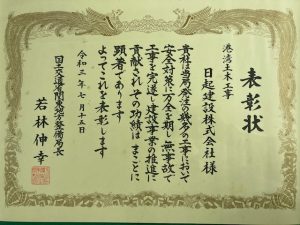 表彰状
港湾土木工事
日起建設株式会社 様
貴社は当局発注の幾多の工事において
安全対策に万全を期し無事故で
工事を完遂し建設事業の推進に
貢献されその功績はまことに
顕著であります
よってこれを表彰します
令和三年七月十五日
国土交通省関東地方整備局長
若林伸幸